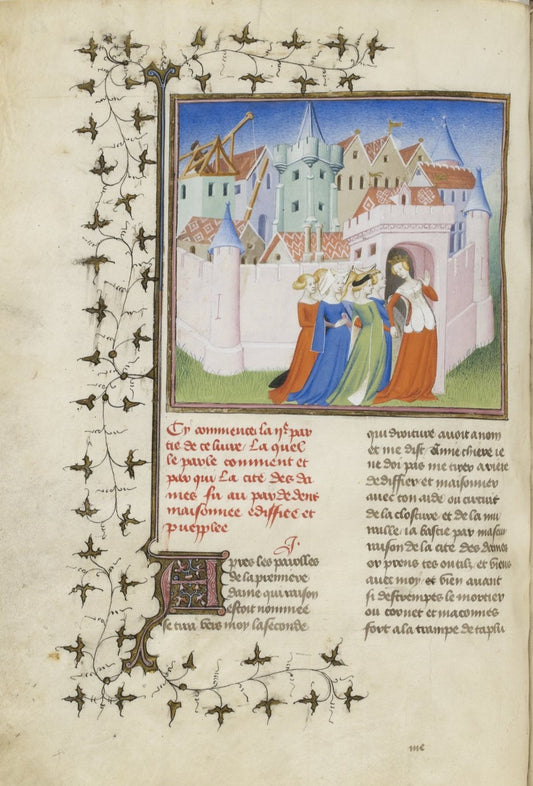 Cy commence la ije par
tie de ce livre · La quel
le parle comment et
par qui La cite des da
mes fu au par dedens
maisonnee edifiee et
pueplee
j.
Apres les parolles
de la premiere
dame qui raison
estoit nommee
se tira vers moy la seconde
qui droiture avoit a nom
et me dist Anne chiere ie
ne doi pas me tirer arriere
de diffier et maisonner
avec ton aide ou circuit
de la closture et de la mu
raille ia bastie par
raison de la cite des dames
or prens tes outilz et viens
avec moy et bien avant
si destrempes le mortier
ou cornet et maconnes
fort a la trampe de ta plu
me